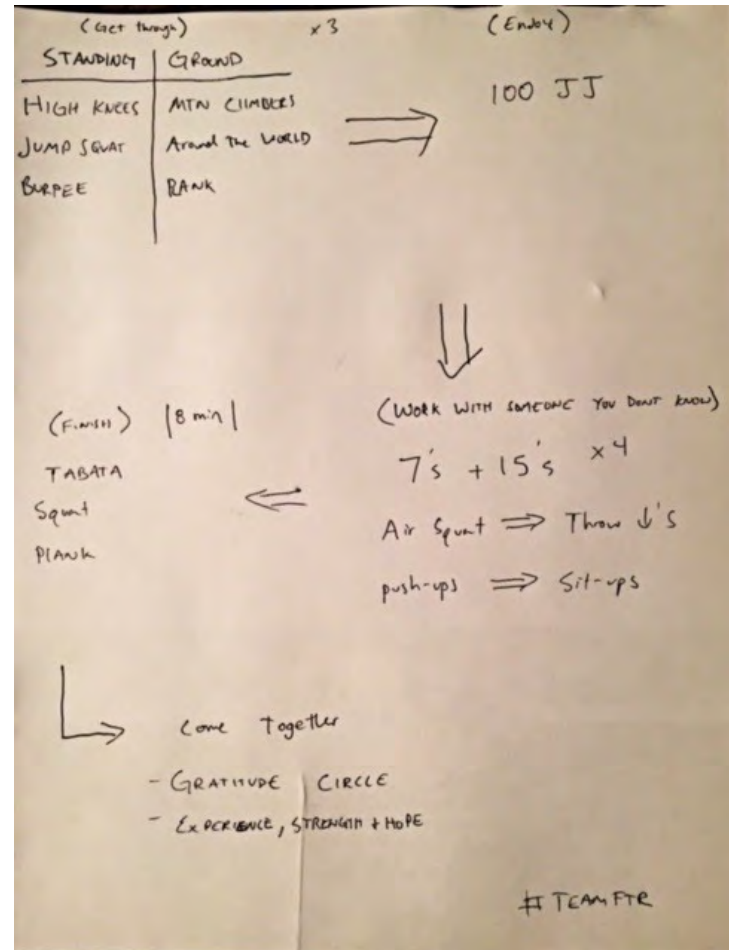 (Get through) x3 (Enjoy)
STANDING GROUND
HIGH KNEES MTN CLIMBERS
100 JJ
JUMP SQUAT Around The WORLD
BURPEE PLANK
(WORK WITH SOMEONE YOU DONT KNOW)
7's + 15's x4
Air Squat ⇒ Throw ↓'s
push-ups ⇒ Sit-ups
(FINISH) |8 min|
TABATA
Squat
PLANK
Come Together
- GRATITUDE CIRCLE
- EXPERIENCE, STRENGTH + HOPE
# TEAM FTR